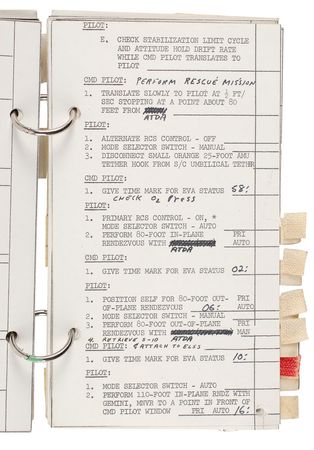 PILOT:
E. CHECK STABILIZATION LIMIT CYCLE
AND ATTITUDE HOLD DRIFT RATE
WHILE CMD PILOT TRANSLATES TO
PILOT
CMD PILOT: PERFORM RESCUE MISSION
1. TRANSLATE SLOWLY TO PILOT AT ½ FT/
SEC STOPPING AT A POINT ABOUT 80
FEET FROM
ATDA
PILOT:
1. ALTERNATE RCS CONTROL - OFF
2. MODE SELECTOR SWITCH - MANUAL
3. DISCONNECT SMALL ORANGE 25-FOOT AMU
TETHER HOOK FROM S/C UMBILICAL TETHER
CMD PILOT:
1. GIVE TIME MARK FOR EVA STATUS 58:
CHECK O2 PRESS
PILOT:
1. PRIMARY RCS CONTROL - ON, *
MODE SELECTOR SWITCH - AUTO
2. PERFORM 80-FOOT IN-PLANE PRI
RENDEZVOUS WITH AUTO
ATDA
CMD PILOT:
1. GIVE TIME MARK FOR EVA STATUS 02:
PILOT:
1. POSITION SELF FOR 80-FOOT OUT- PRI
OF-PLANE RENDEZVOUS 06: AUTO
2. MODE SELECTOR SWITCH - MANUAL
3. PERFORM 80-FOOT OUT-OF-PLANE PRI
RENDEZVOUS WITH MAN
ATDA
4. RETRIEVE S-10
CMD PILOT: & ATTACH TO ELSS
1. GIVE TIME MARK FOR EVA STATUS 10:
PILOT:
1. MODE SELECTOR SWITCH - AUTO
2. PERFORM 110-FOOT IN-PLANE RNDZ WITH
GEMINI, MNVR TO A POINT IN FRONT OF
CMD PILOT WINDOW PRI AUTO 16: